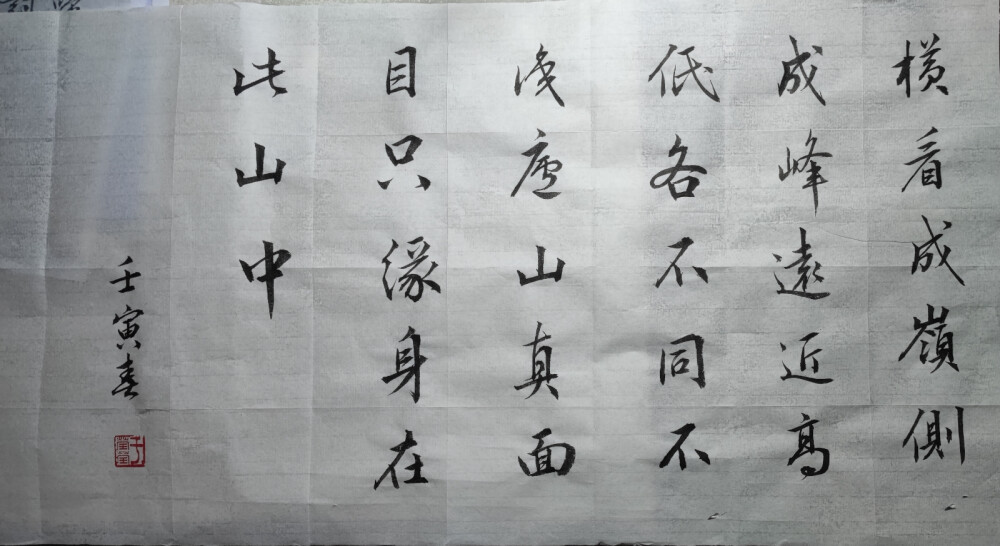 橫看成嶺側
成峰遠近高
低各不同不
識廬山真面
目只緣身在
此山中
壬寅春